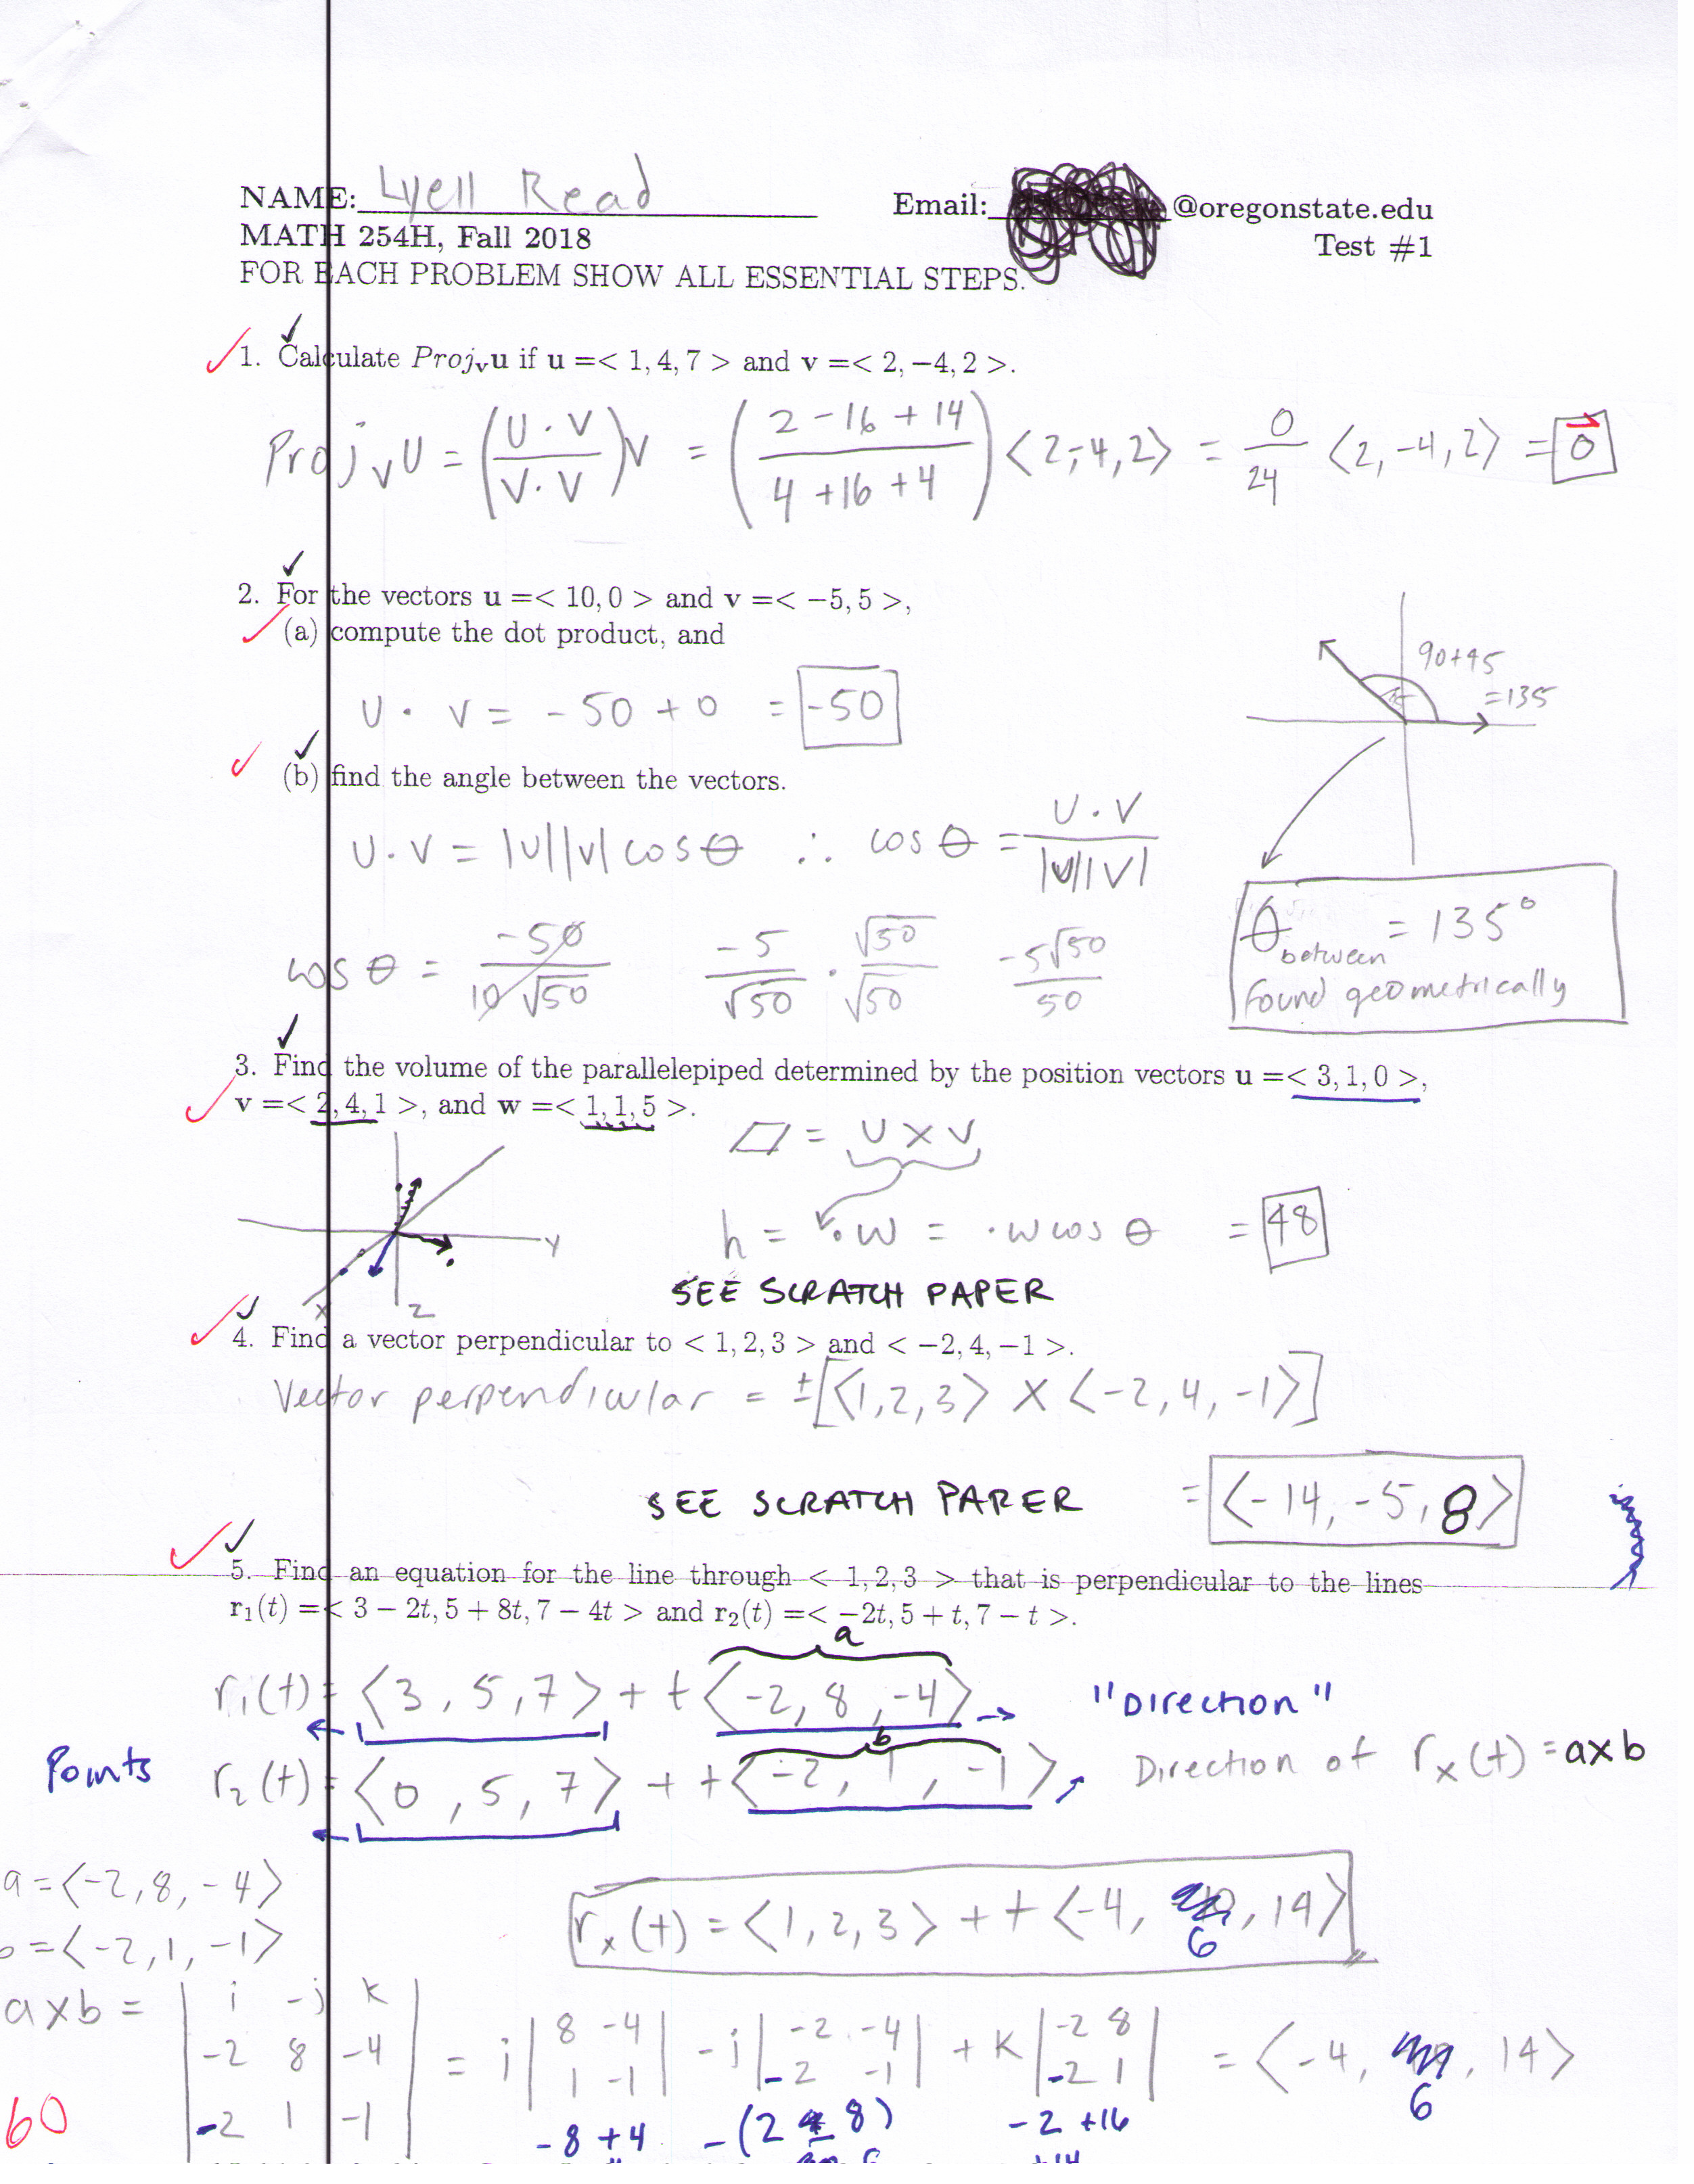 NAME: Lyell Read Email: @oregonstate.edu
MATH 254H, Fall 2018 Test #1
FOR EACH PROBLEM SHOW ALL ESSENTIAL STEPS.
1. Calculate Proj_v u if u =< 1, 4, 7 > and v =< 2, −4, 2 >.
Proj_v U = (U · V / V · V) V = (2 - 16 + 14 / 4 + 16 + 4) ⟨2,-4,2⟩ = 0/24 ⟨2,-4,2⟩ = 0⃗
2. For the vectors u =< 10, 0 > and v =< −5, 5 >,
(a) compute the dot product, and
90+45
=135
U · V = -50 + 0 = -50
(b) find the angle between the vectors.
U · V = |U||V| cos θ ∴ cos θ = U · V / |U||V|
cos θ = -50 / 10√50 -5/√50 · √50/√50 -5√50/50
θ between = 135°
found geometrically
3. Find the volume of the parallelepiped determined by the position vectors u =< 3, 1, 0 >,
v =< 2, 4, 1 >, and w =< 1, 1, 5 >.
▱ = U × V
h = · W = · W cos θ = 48
Y
X
Z
SEE SCRATCH PAPER
4. Find a vector perpendicular to < 1, 2, 3 > and < −2, 4, −1 >.
Vector perpendicular = ±[⟨1,2,3⟩ × ⟨-2,4,-1⟩]
SEE SCRATCH PAPER = ⟨-14, -5, 8⟩
5. Find an equation for the line through < 1, 2, 3 > that is perpendicular to the lines
r₁(t) =< 3 − 2t, 5 + 8t, 7 − 4t > and r₂(t) =< −2t, 5 + t, 7 − t >.
a
r₁(t) = ⟨3, 5, 7⟩ + t⟨-2, 8, -4⟩ → "Direction"
b
Points r₂(t) = ⟨0, 5, 7⟩ + t⟨-2, 1, -1⟩ Direction of rₓ(t) = a×b
a = ⟨-2, 8, -4⟩
b = ⟨-2, 1, -1⟩
rₓ(t) = ⟨1, 2, 3⟩ + t⟨-4, 6, 14⟩
a×b = | i -j k | -2 8 -4 | -2 1 -1 | = i |8 -4 | 1 -1| - j |-2 -4 | -2 -1| + k |-2 8 | -2 1| = ⟨-4, 6, 14⟩
-8 + 4 -(2 - 8) -2 +16
60 +14